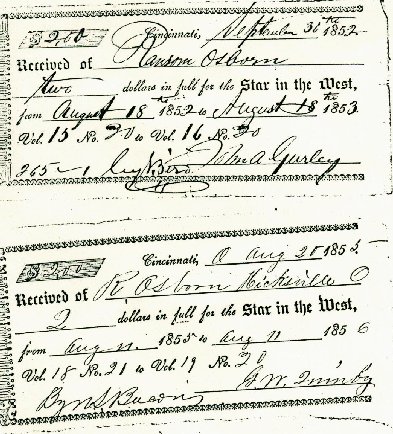 $2.00 Cincinnati, September 30th 1852
Received of Ransom Osborn
two dollars in full for the Star in the West,
from August 18th 1852 to August 18th 1853
Vol. 15 No. 20 to Vol. 16 No. 20
John A Gurley
$2.00 Cincinnati, O Aug 20 1855
Received of R. Osborn Hicksville O
2 dollars in full for the Star in the West,
from Aug 11 1855 to Aug 11 1856
Vol. 18 No. 21 to Vol. 19 No. 20
By